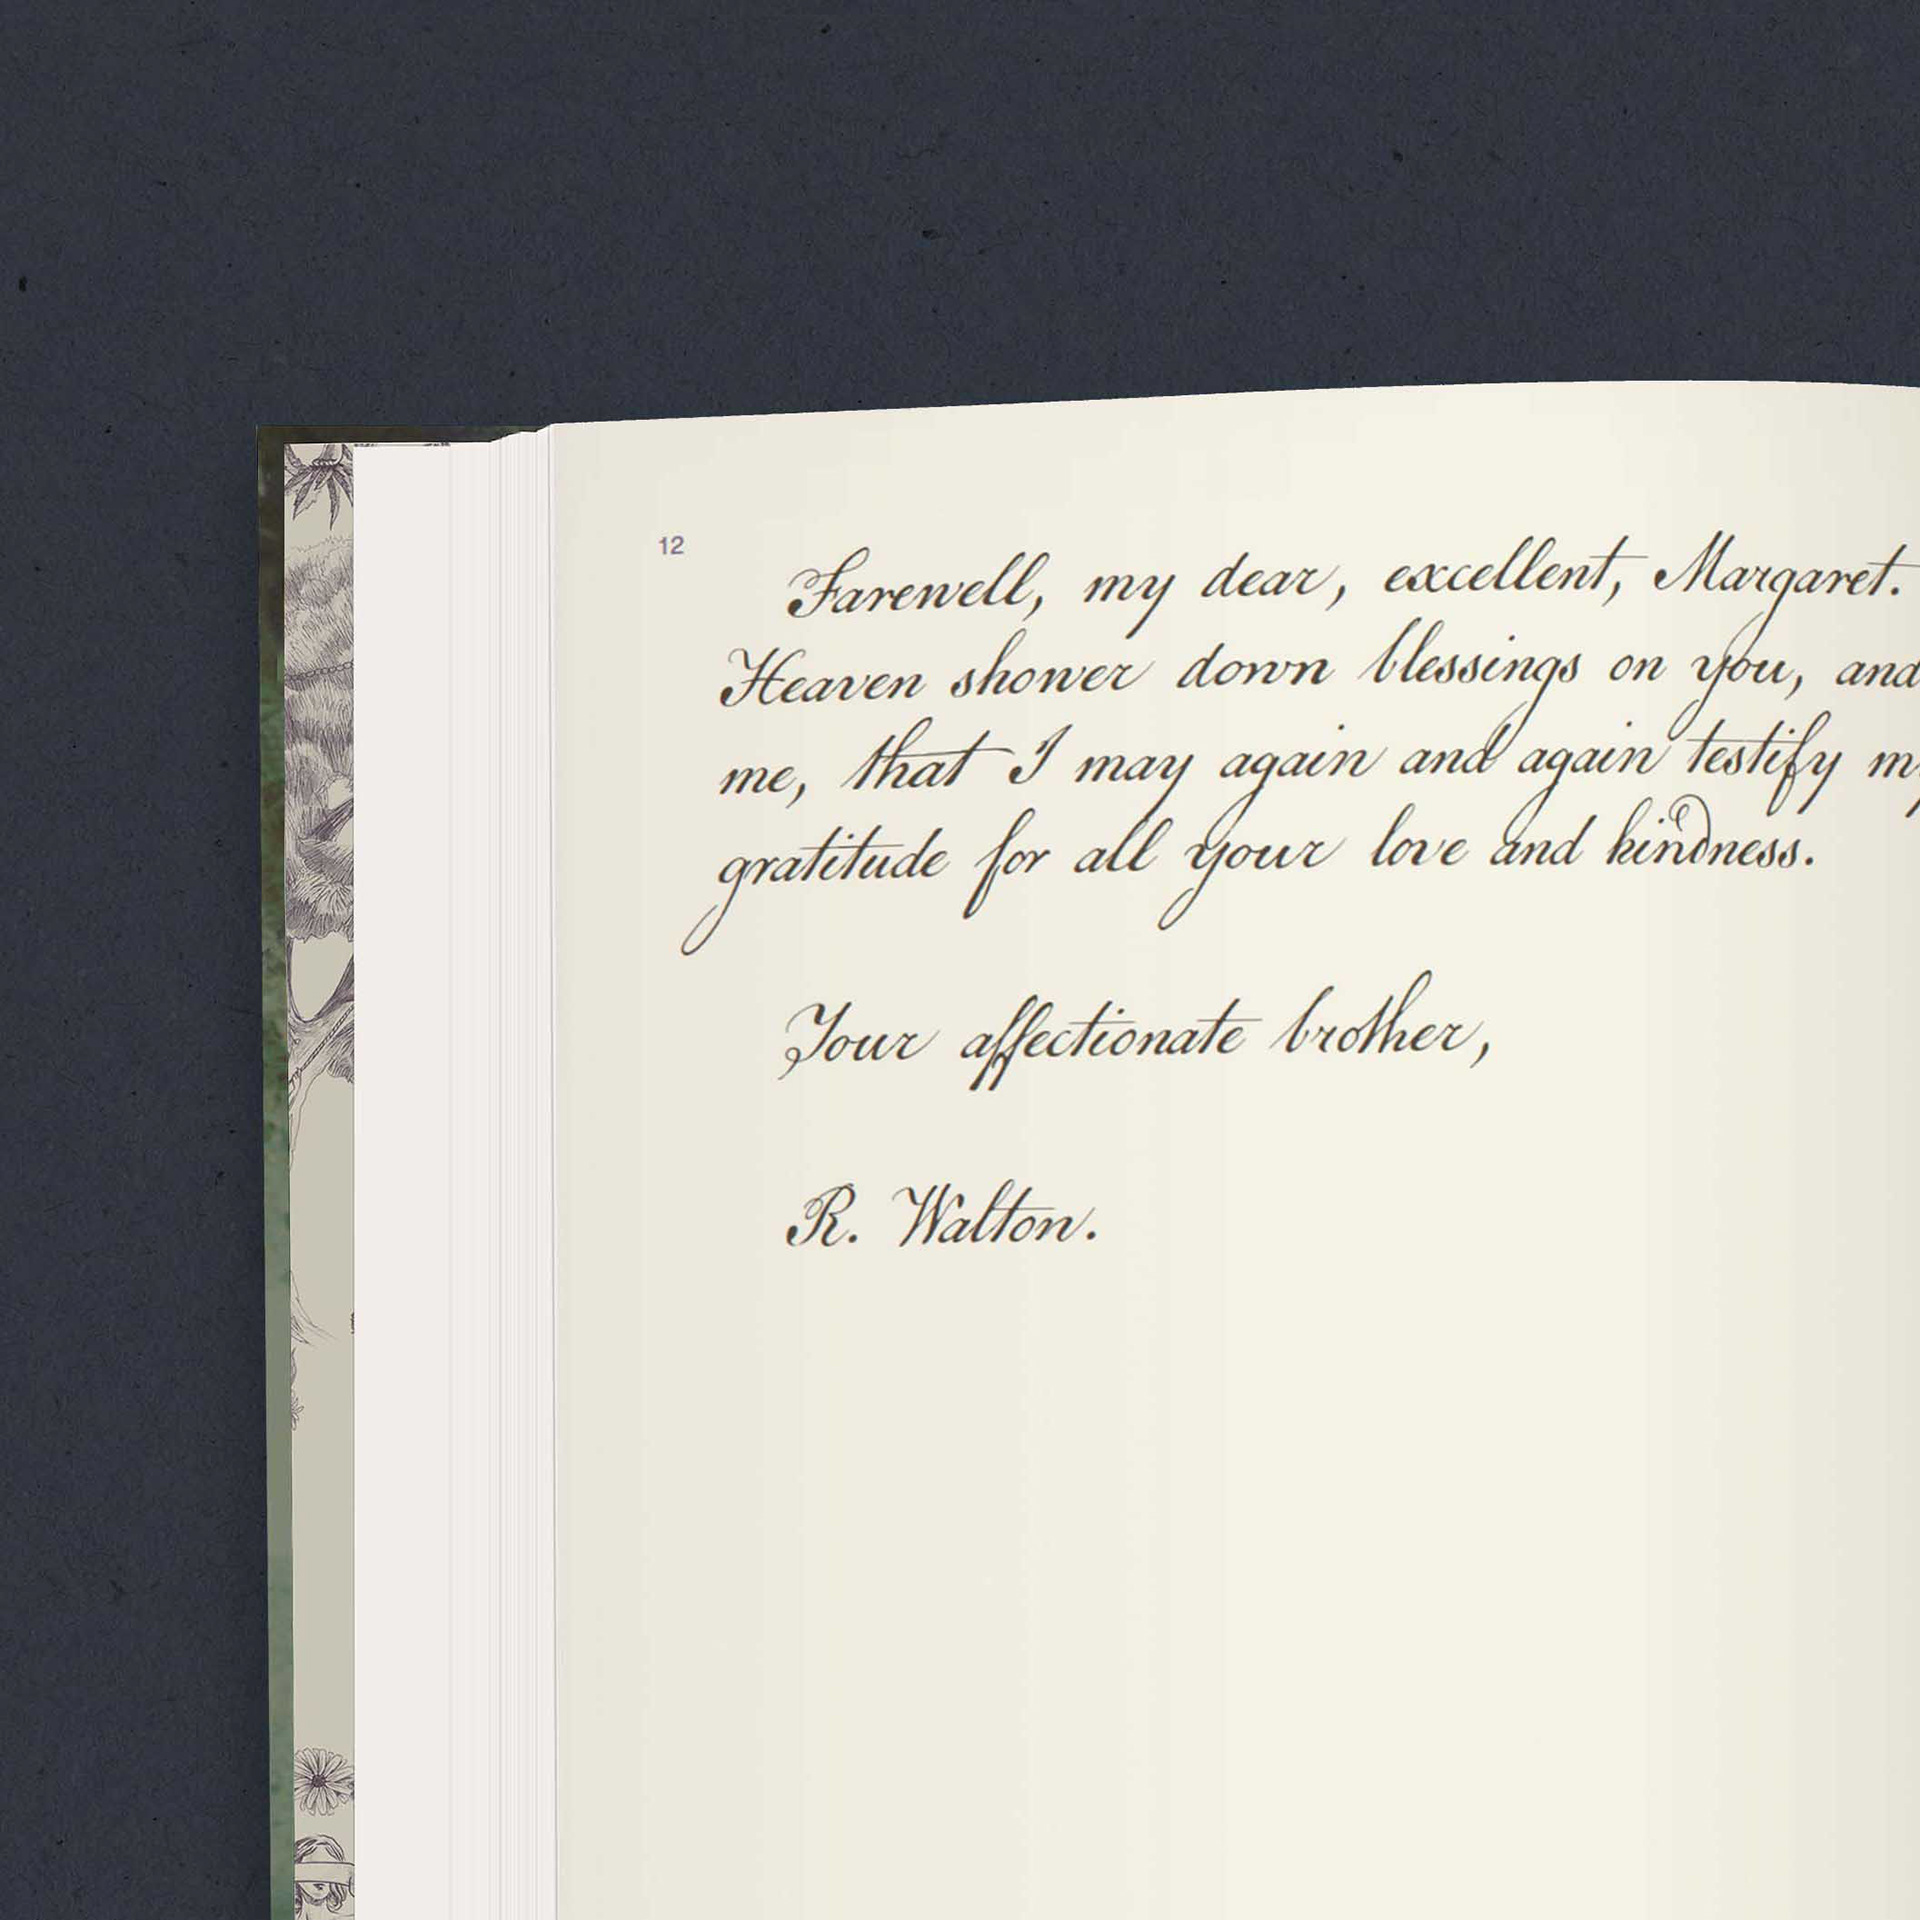 12
Farewell, my dear, excellent, Margaret.
Heaven shower down blessings on you, and
me, that I may again and again testify my
gratitude for all your love and kindness.
Your affectionate brother,
R. Walton.